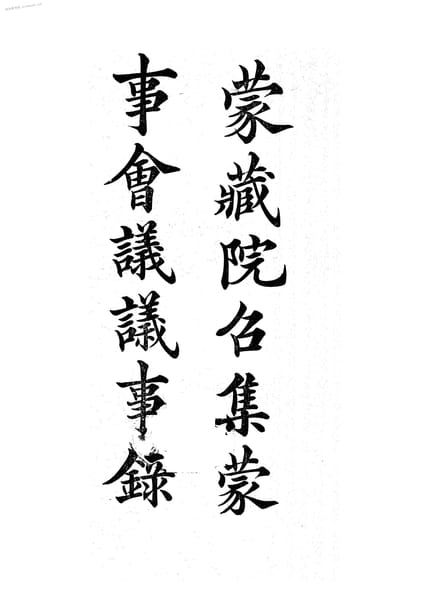 蒙藏院召集蒙
事會議議事錄